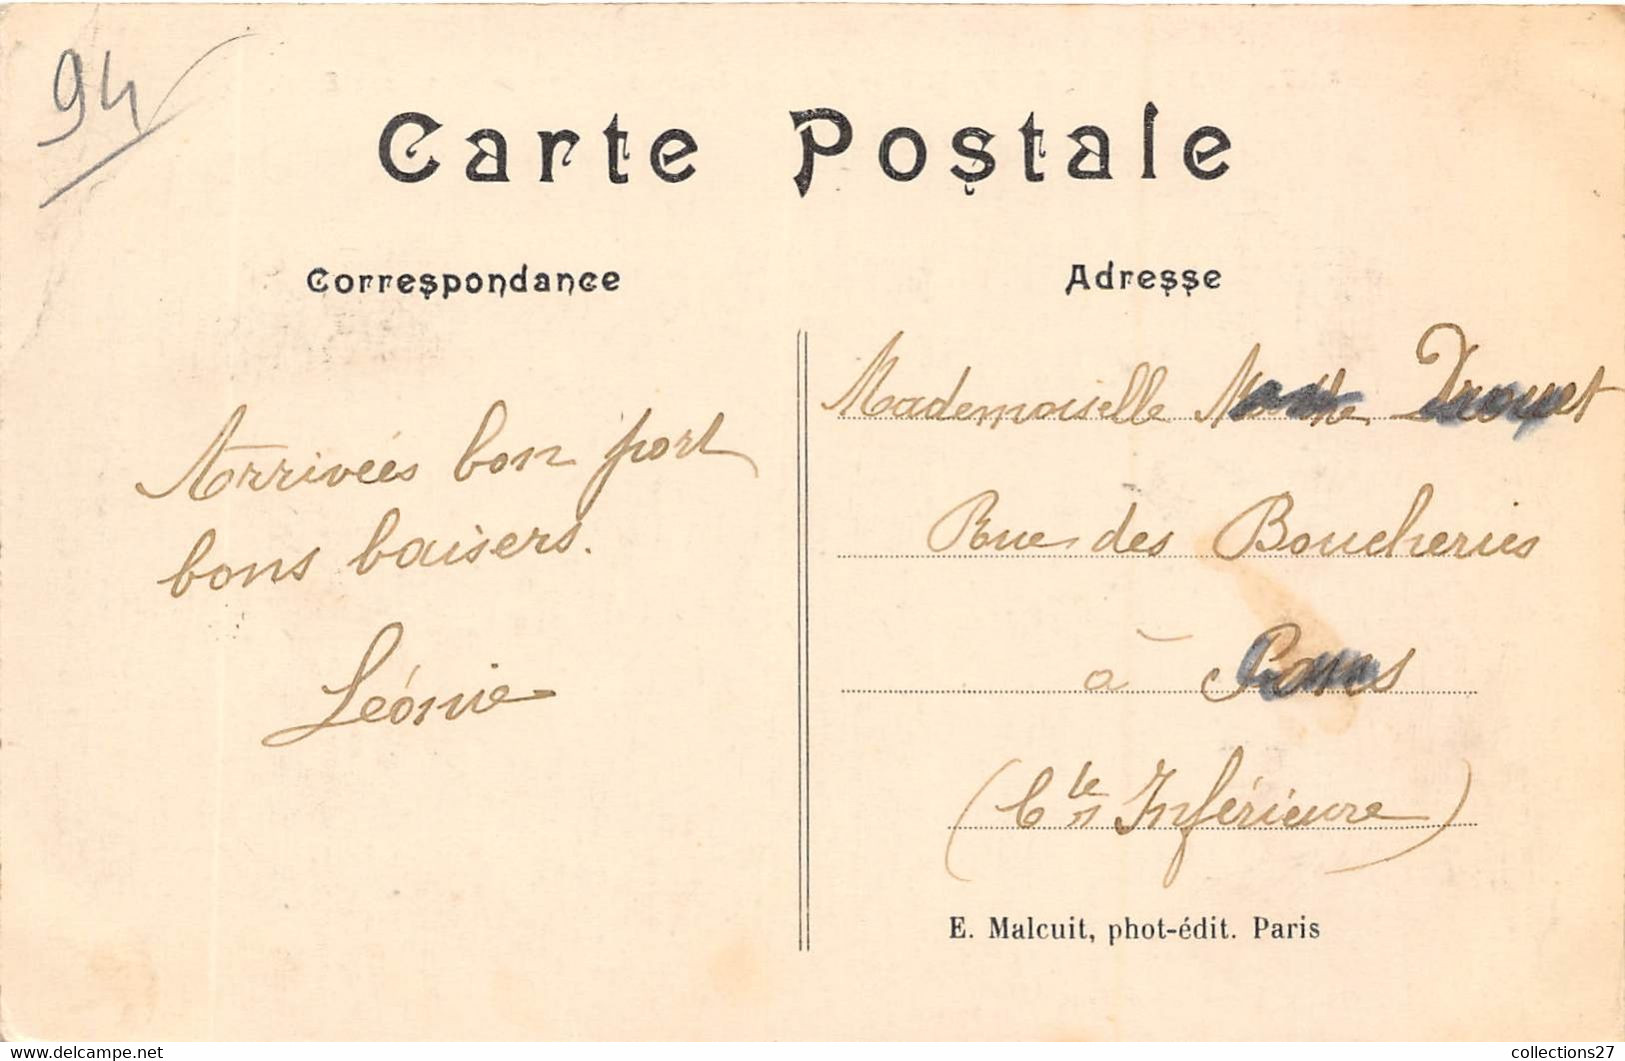 94
Carte Postale
Correspondance
Arrivées bon port
bons baisers.
Léonie
Adresse
Mademoiselle
Rue des Boucheries
à
(Cte Inférieure)
E. Malcuit, phot-édit. Paris
collections27